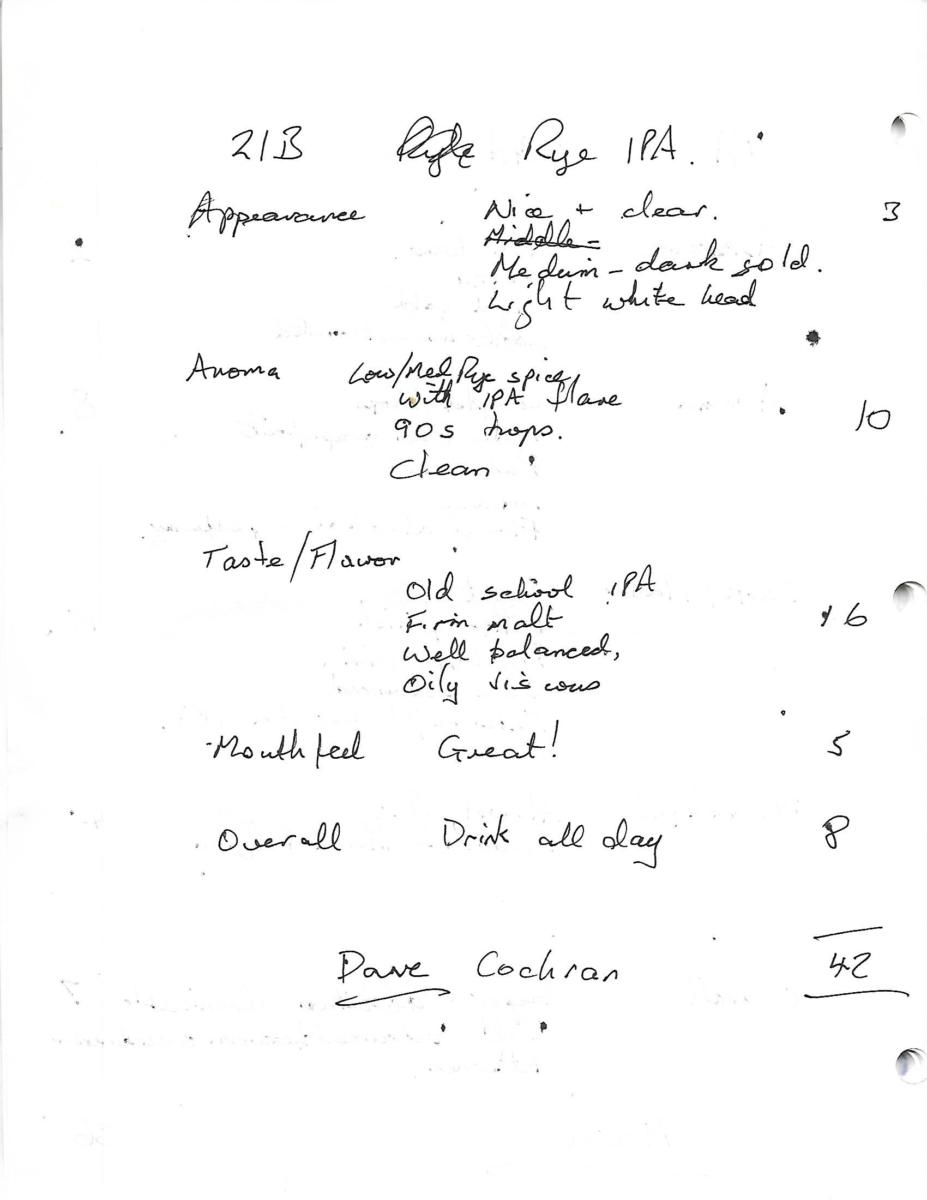 21B Rye IPA.
Appearance Nice + clear. 3
Middle -
Medium - dark gold.
Light white head
Aroma Low/Med Rye spicey
with IPA flare
90s hops. 10
Clean
Taste/Flavor
Old school IPA
Firm malt 16
Well balanced,
Oily viscous
Mouthfeel Great! 5
Overall Drink all day 8
Dave Cochran 42